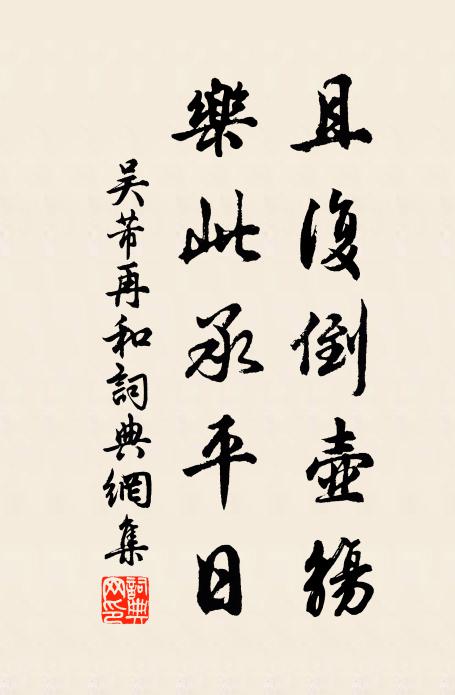 且復倒壺觴
樂此承平日
吴芾再和詞典網集
詞典網印